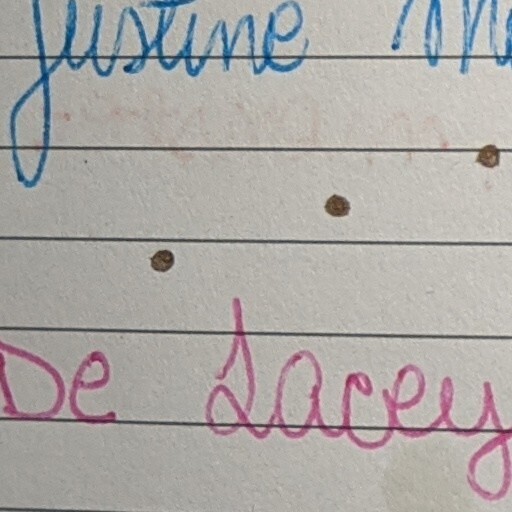 Justine
De Lacey